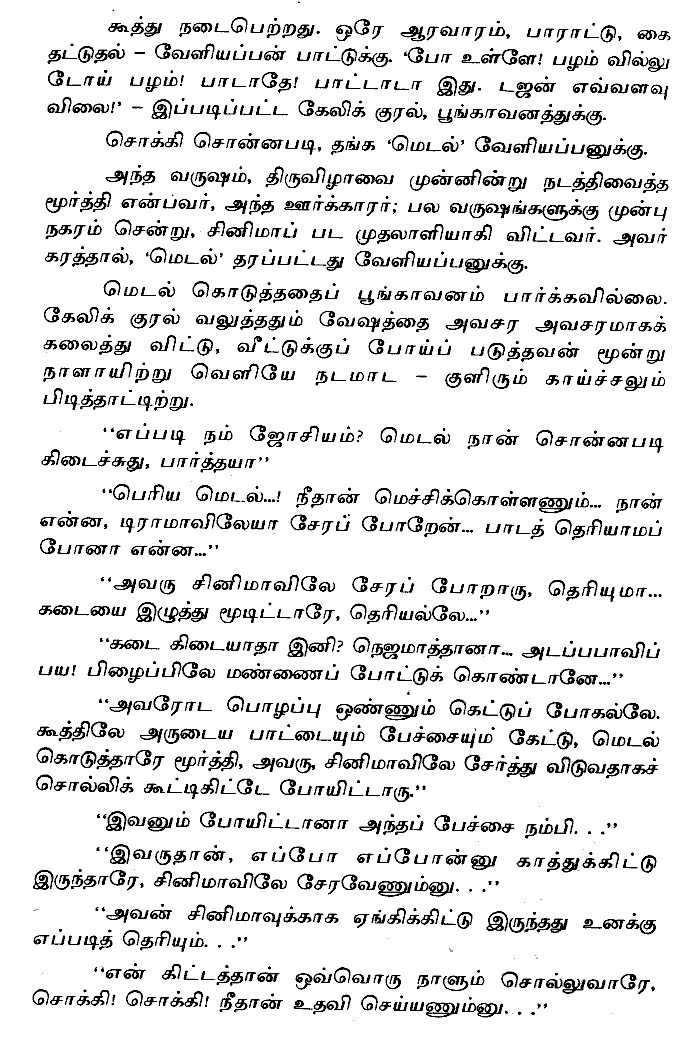 கூத்து நடைபெற்றது. ஒரே ஆரவாரம், பாராட்டு, கை
தட்டுதல் – வேளியப்பன் பாட்டுக்கு. ‘போ உள்ளே! பழம் வில்லு
டோய் பழம்! பாடாதே! பாட்டாடா இது. டஜன் எவ்வளவு
விலை!’ – இப்படிப்பட்ட கேலிக் குரல், பூங்காவனத்துக்கு.
சொக்கி சொன்னபடி, தங்க ‘மெடல்’ வேளியப்பனுக்கு.
அந்த வருஷம், திருவிழாவை முன்னின்று நடத்திவைத்த
மூர்த்தி என்பவர், அந்த ஊர்க்காரர்; பல வருஷங்களுக்கு முன்பு
நகரம் சென்று, சினிமாப் பட முதலாளியாகி விட்டவர். அவர்
கரத்தால், ‘மெடல்’ தரப்பட்டது வேளியப்பனுக்கு.
மெடல் கொடுத்ததைப் பூங்காவனம் பார்க்கவில்லை.
கேலிக் குரல் வலுத்ததும் வேஷத்தை அவசர அவசரமாகக்
கலைத்து விட்டு, வீட்டுக்குப் போய்ப் படுத்தவன் மூன்று
நாளாயிற்று வெளியே நடமாட – குளிரும் காய்ச்சலும்
பிடித்தாட்டிற்று.
“எப்படி நம் ஜோசியம்? மெடல் நான் சொன்னபடி
கிடைச்சுது, பார்த்தயா”
“பெரிய மெடல்...! நீதான் மெச்சிக்கொள்ளணும்... நான்
என்ன, டிராமாவிலேயா சேரப் போறேன்... பாடத் தெரியாமப்
போனா என்ன...”
“அவரு சினிமாவிலே சேரப் போறாரு, தெரியுமா...
கடையை இழுத்து மூடிட்டாரே, தெரியல்லே...”
“கடை கிடையாதா இனி? நெஜமாத்தானா... அடப்பபாவிப்
பய! பிழைப்பிலே மண்ணைப் போட்டுக் கொண்டானே...”
“அவரோட பொழப்பு ஒண்ணும் கெட்டுப் போகல்லே.
கூத்திலே அருடைய பாட்டையும் பேச்சையும் கேட்டு, மெடல்
கொடுத்தாரே மூர்த்தி, அவரு, சினிமாவிலே சேர்த்து விடுவதாகச்
சொல்லிக் கூட்டிகிட்டே போயிட்டாரு.”
“இவனும் போயிட்டானா அந்தப் பேச்சை நம்பி. . .”
“இவருதான், எப்போ எப்போன்னு காத்துக்கிட்டு
இருந்தாரே, சினிமாவிலே சேரவேணும்னு. . .”
“அவன் சினிமாவுக்காக ஏங்கிக்கிட்டு இருந்தது உனக்கு
எப்படித் தெரியும். . .”
“என் கிட்டத்தான் ஒவ்வொரு நாளும் சொல்லுவாரே,
சொக்கி! சொக்கி! நீதான் உதவி செய்யணும்னு. . .”